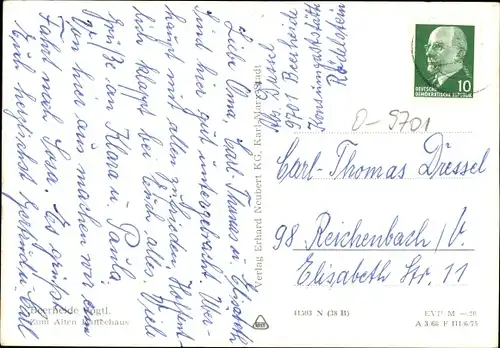 Liebe Oma, Carl-Thomas u. Elisabeth
sind hier gut untergebracht. Wer-
haupt mit allem zufrieden. Hoffent-
lich klappt bei Euch alles. Viele
Grüße an Klara u. Paula.
Von hier aus machen wir eine
Fahrt nach Sosa. Es grüßt
Euch herzlichst
Verlag Erhard Neubert KG, Karl-Marx-Stadt
9701 Beerheide
DEUTSCHE
DEMOKRATISCHE REPUBLIK
10
O-9701
Carl-Thomas Dressel
98 Reichenbach/V
Elisabeth Str. 11
Beerheide Vogtl.
Zum Alten
11503 N (38 B)
EVP M -,20
A 3/66 F III/6/75